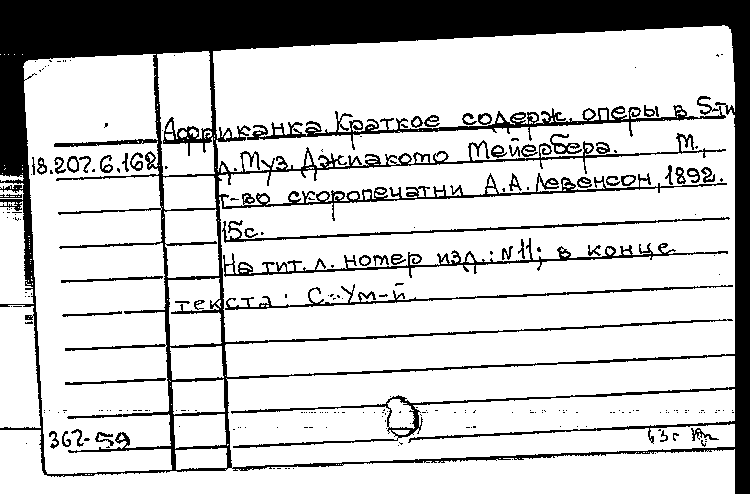 Африканка. Краткое содерж. оперы в 5-ти
18.207.6.162. д. Муз. Джиакомо Мейербера. М.,
т-во скоропечатни А.А. Левенсон, 1892.
15с.
На тит. л. номер изд.: N11; в конце
текста: С. Ум-й.
367-59
63г